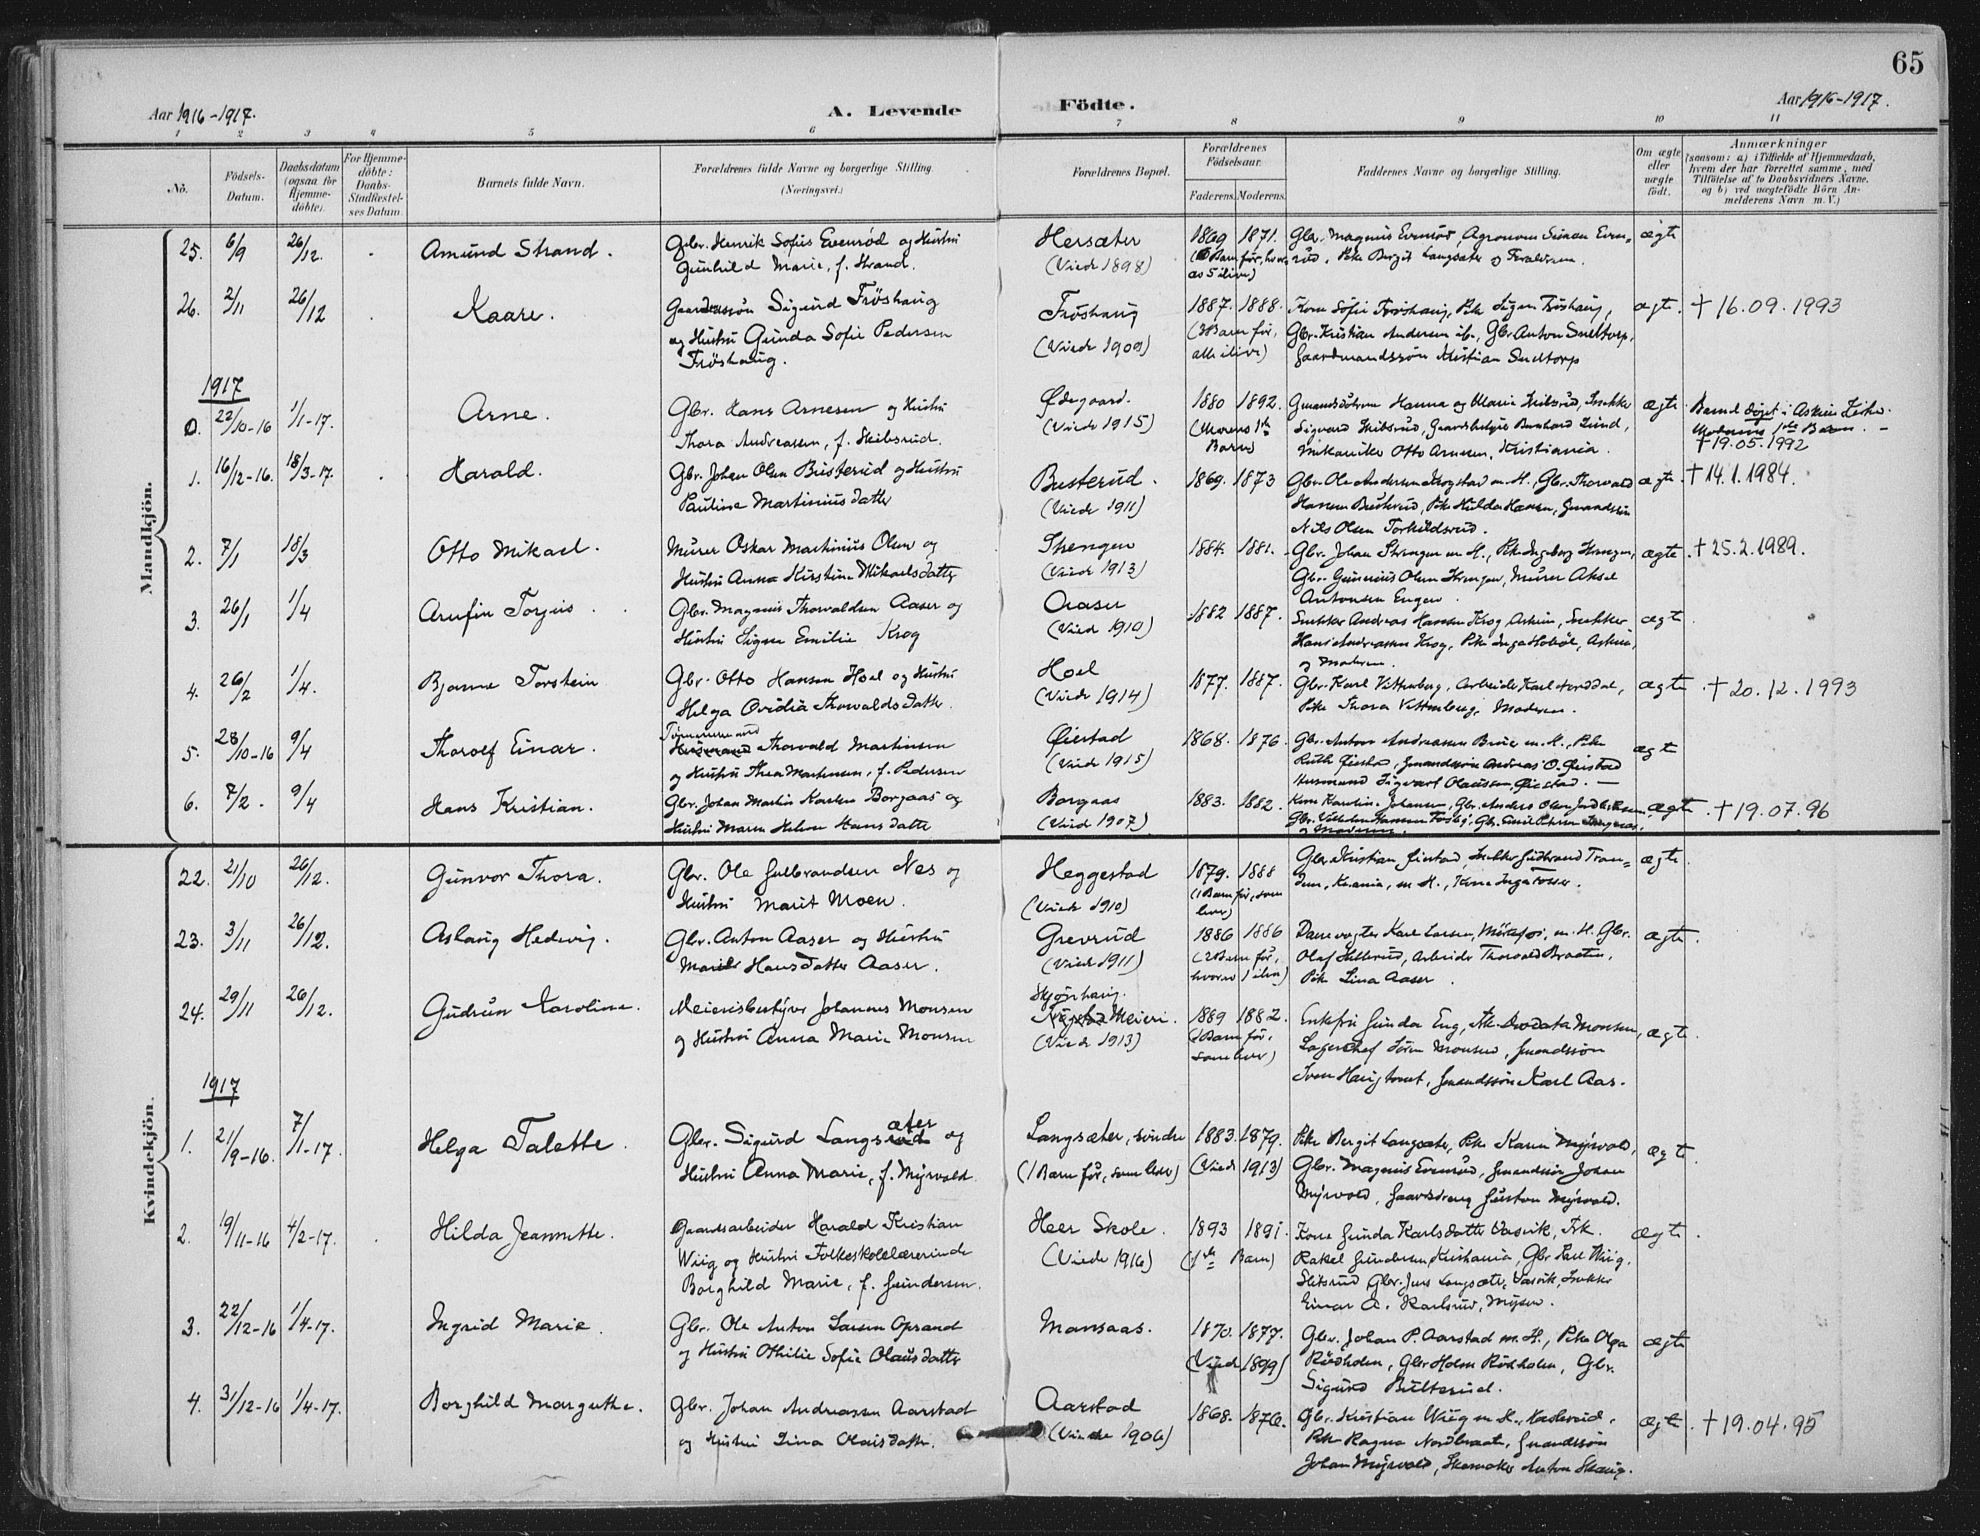 65
Aar 1916-1917.
A. Levende
Födte.
Aar 1916-1917.
1 2 3 4 5 6 7 8 9 10 11
No.
Födsels-
Datum.
Daabsdatum
(ogsaa for
Hjemme-
döbte).
For Hjemme-
döbte:
Daabs-
Stadfæstel-
ses Datum.
Barnets fulde Navn.
Forældrenes fulde Navne og borgerlige Stilling
(Næringsvei.)
Forældrenes Bopæl.
Forældrenes
Födselsaar.
Faderens. Moderens.
Faddernes Navne og borgerlige Stilling.
Om ægte
eller
uægte
födt.
Anmærkninger
(saasom: a) i Tilfælde af Hjemmedaab,
hvem der har forrettet samme, med
Tilföielse af to Daabsvidners Navne,
og b) ved uægtefödte Börn An-
melderens Navn m. V.)
Mandkjön.
25. 6/9 26/12. Amund Strand.
Gbr. Henrik Sofus Evenröd og Hustru
Gunhild Marie, f. Strand.
Hersæter
(Viede 1898)
1869 1871.
av 5 ilive)
Gbr. Magnus Evenröd, Agronom Simen Even-
röd, Pike Bergit Langsæter og Forældrene.
ægte
26. 2/11 26/12 Kaare.
Gaardmandssön Sigurd Fröshaug
og Hustru Gunda Sofie Pedersen
Fröshaug.
Fröshaug
(Viede 1909)
1887. 1888.
(3 Barn för,
alle ilive)
Kone Sofie Fröshaug, Pike Signe Fröshaug,
Gbr. Kristian Andersen ib., Gbr. Anton Sneltorp,
Gaardmandssön Kristian Sneltorp
ægte. † 16.09.1993
1917
0. 22/10-16 1/1-17. Arne.
Gbr. Hans Arnesen og Hustru
Thora Andreassen, f. Skibsrud.
Ødegaard.
(Viede 1915)
1880 1892.
(Morens 1ste
Barn)
Gmandsdötrene Hanna og Marie Skibsrud, Snekker
Sigvard Skibsrud, Gaardbestyrer Bernhard Lund,
Mekaniker Otto Arnesen, Kristiania.
ægte
Barnet døpt i Askim Kirke.
Moderens 1ste Barn. -
† 19.05.1992
1. 16/12-16. 18/3-17. Harald.
Gbr. Johan Olsen Busterud og Hustru
Pauline Martiniusdatter
Busterud.
(Viede 1911)
1869. 1873
Gbr. Ole Andersen Krogstad m. H., Gbr. Thorvald
Hansen Busterud, Pike Hulda Hansen, Gmandssön
Nils Olsen Torkildsrud.
ægte. † 14.1.1984.
2. 7/1 18/3 Otto Mikael.
Murer Oskar Martinius Olsen og
Hustru Anna Kirstine Mikaelsdatter
Strengen
(Viede 1913)
1884. 1881.
Gbr. Johan Strengen m. H., Pike Ingeborg Strengen,
Gbr. Gunerius Olsen Strengen, Murer Aksel
Antonsen Engen.
ægte. † 25.2.1989.
3. 26/1 1/4 Arnfin Torjus.
Gbr. Magnus Thorvaldsen Aaser og
Hustru Signe Emilie Krog
Aaser
(Viede 1910)
1882 1887.
Snekker Andreas Hansen Krog, Askim, Snekker
Hans Andreassen Krog, Pike Inga Hobøl, Askim,
og Moderen.
ægte.
4. 26/2 1/4. Bjarne Torstein
Gbr. Otto Hansen Hoel og Hustru
Helga Ovidia Thorvaldsdatter.
Hoel
(Viede 1914)
1877. 1887.
Gbr. Karl Vittenberg, Arbeider Karl Norddal,
Pike Thora Vittenberg, Moderen.
ægte. † 20.12.1993
5. 28/10-16 9/4 Thorolf Einar.
Tömmermand
Thorvald Martinsen
og Hustru Thea Martinsen, f. Pedersen
Øiestad
(Viede 1915)
1868. 1876.
Gbr. Anton Andreassen Brue m. H., Pike
Ruth Øiestad, Gmandssön Andreas O. Øiestad
Husmand Sigvart Olaussen Øiestad. -
ægte
6. 7/2. 9/4 Hans Kristian.
Gbr. Johan Martin Karsten Borgaas og
Hustru Maren Helene Hansdatter
Borgaas
(Viede 1907)
1883. 1882.
og Moderen.
ægte. † 19.07.96
Kvindekjön.
22. 21/10 26/12. Gunvor Thora.
Gbr. Ole Gulbrandsen Nes og
Hustru Marit Moen.
Heggestad
(Viede 1910)
1879. 1888
(1 Barn för, som
lever)
Gbr. Kristian Øiestad, Snekker Gudbrand Tran-
ægte.
23. 3/11 26/12. Aslaug Hedvig.
Gbr. Anton Aaser og Hustru
Marie Hansdatter Aaser.
Grevrud
(Viede 1911)
1886 1886
(2 Barn för,
hvorav 1 ilive)
Banevogter Karl Larsen, Mörkfos, m. H. Gbr.
Olaf Hellerud, Arbeider Thorvald Braaten,
Pike Lina Aaser.
ægte.
24. 29/11 26/12. Gudrun Karoline.
Meieribestyrer Johannes Monsen
og Hustru Anna Marie Monsen
Skjönhaug
Meieri.
(Viede 1913)
1889 1882.
(1 Barn för,
som lever)
Enkefru Gunda Eng, Frk. Deodata Monsen,
Lagerchef Sören Monsen, Gmandssön
Iven Haugtomt, Gmandssön Karl Aas.
ægte.
1917
1. 21/9-16. 7/1-17. Helga Talette.
Gbr. Sigurd Langsæter og
Hustru Anna Marie, f. Myrvold
Langsæter, söndre
(1 Barn för, som lever)
1883. 1879.
(Viede 1913)
Pike Bergit Langsæter, Pike Karen Myrvold,
Gbr. Magnus Evenröd, Gmandssön Johan
Myrvold, Gaardsdreng Gustav Myrvold.
ægte.
2. 19/11-16 4/2-17. Hilda Jeannette.
Gaardsarbeider Harald Kristian
Wiig og Hustru Folkeskolelærerinde
Borghild Marie, f. Gundersen.
Heer Skole.
(Viede 1916)
1893 1891.
(1ste Barn)
Kone Gunda Karlsdatter Vasvik, Frk.
Rakel Gundersen, Kristiania, Gbr. Karl Wiig,
Slitsrud, Gbr. Jens Langsæter, Vasvik, Snekker
Einar A. Karlsrud, Mysen.
ægte.
3. 22/12-16 1/4-17. Ingrid Marie.
Gbr. Ole Anton Larsen Opsand
og Hustru Othilie Sofie Olausdatter
Monsaas.
1870. 1877.
(Viede 1899)
Gbr. Johan P. Aarstad m. H., Pike Olga
Rödholen, Gbr. Holm Rödholen, Gbr.
Sigurd Bulterud.
ægte
4. 31/12-16 1/4-17. Borghild Margrethe.
Gbr. Johan Andreassen Aarstad
og Hustru Lina Olausdatter.
Aarstad
(Viede 1906)
1868. 1876.
Gbr. Kristian Wiig m. H., Haslerud,
Pike Ragna Nordbraaten, Gmandssön
Johan Myrvold, Skomaker Anton Skaug.
ægte. † 19.04.95